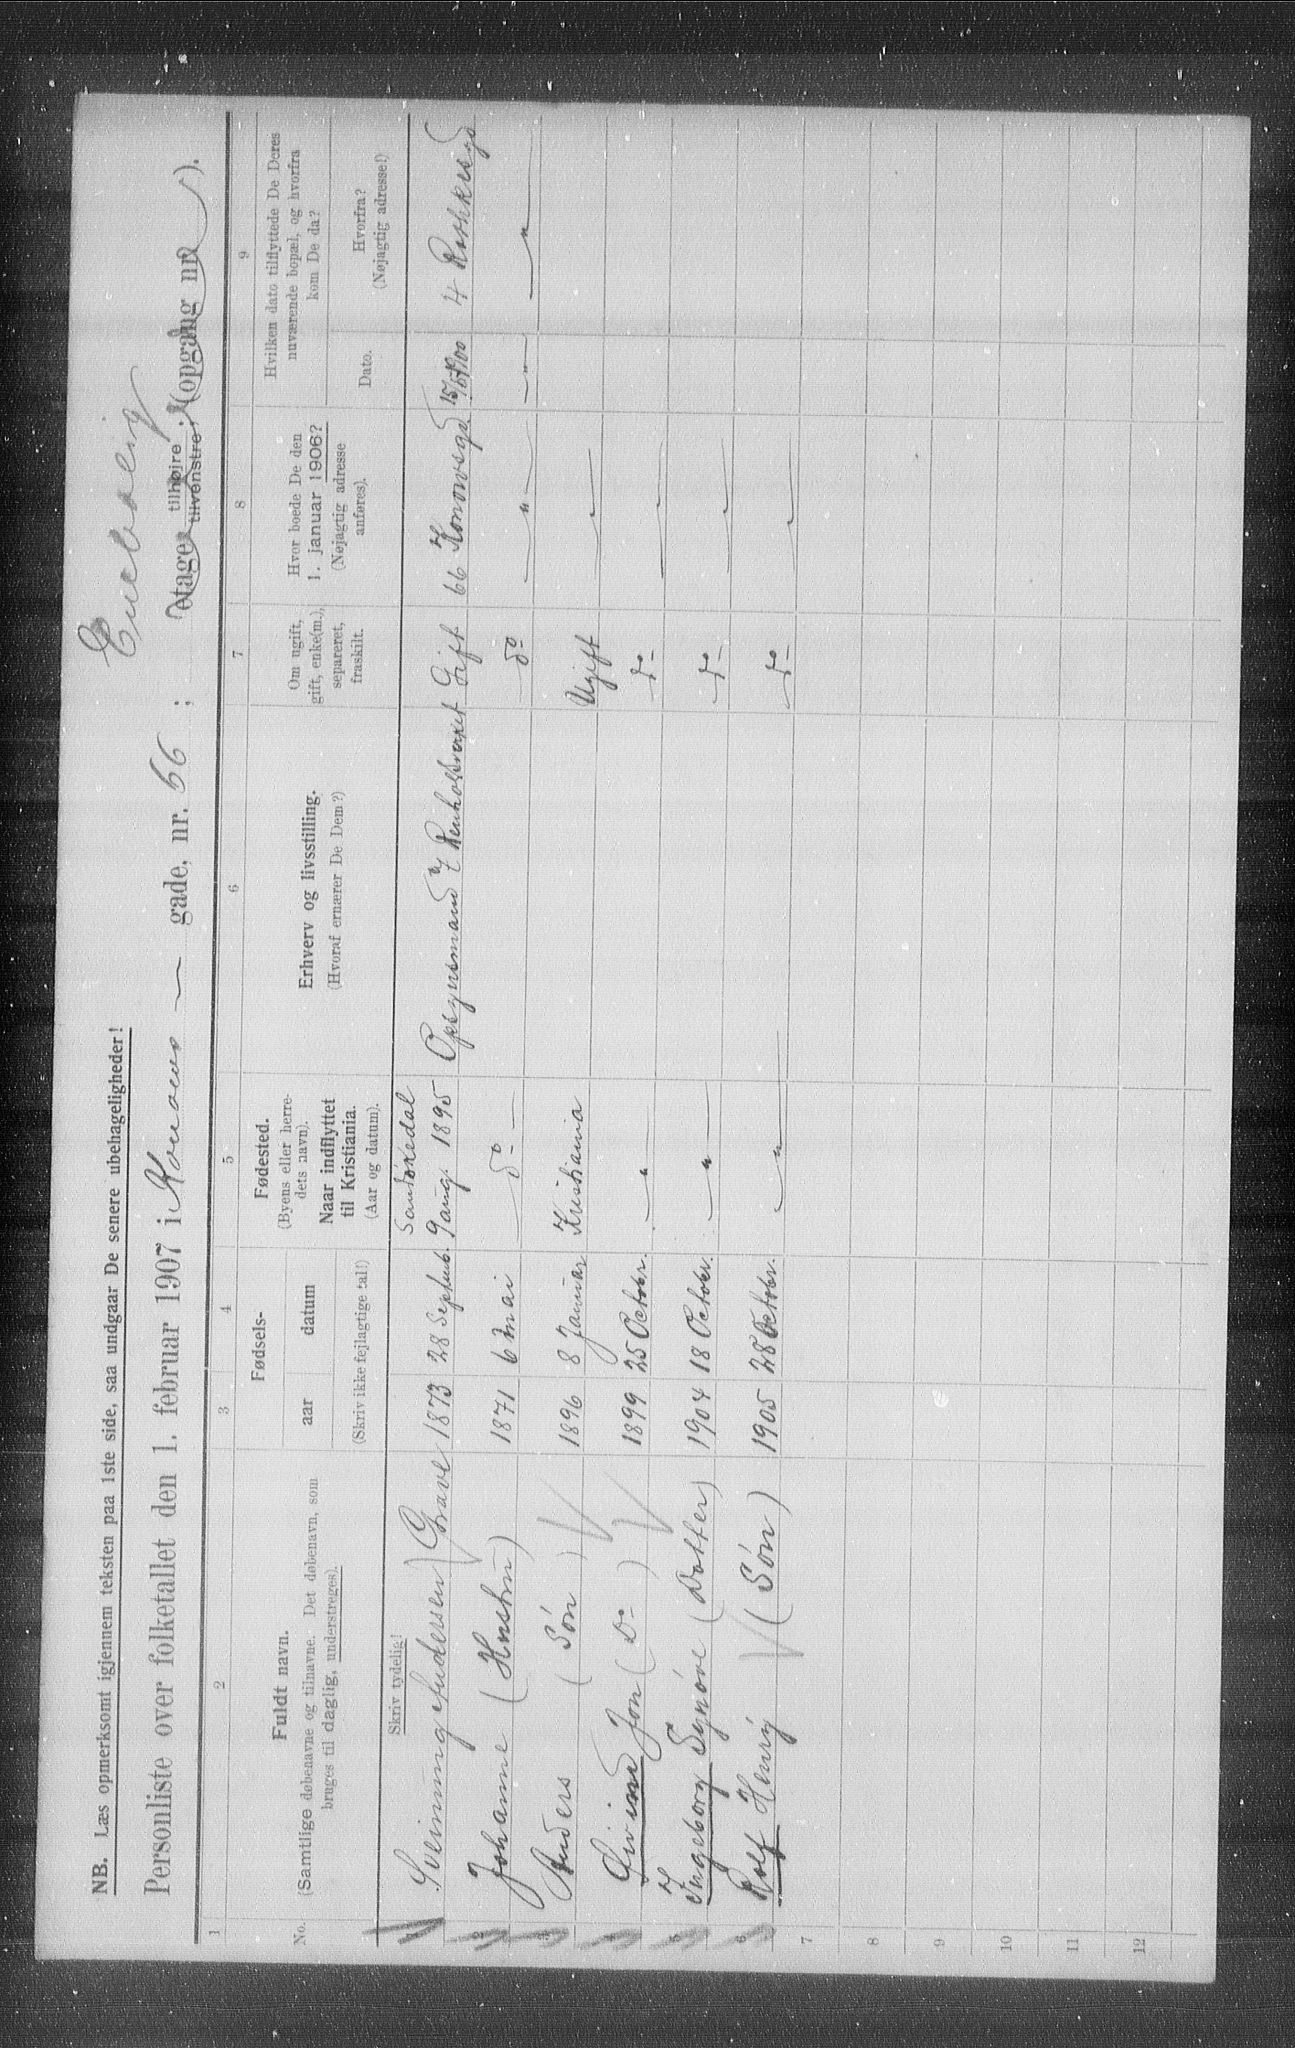 NB. Læs opmerksomt igjennem teksten paa 1ste side, saa undgaar De senere ubehageligheder!
Personliste over folketallet den 1. februar 1907 i Konows — gade, nr. 66 ; Etage tilhøjre tilvenstre, (opgang nr. ).
Enebolig
1 2 3 4 5 6 7 8 9
No.
Fuldt navn.
(Samtlige døbenavne og tilnavne. Det døbenavn, som
bruges til daglig, understreges).
Skriv tydelig!
Fødsels-
aar datum
(Skriv ikke fejlagtige tal!)
Fødested.
(Byens eller herre-
dets navn).
Naar indflyttet
til Kristiania.
(Aar og datum).
Erhverv og livsstilling.
(Hvoraf ernærer De Dem?)
Om ugift,
gift, enke(m.),
separeret,
fraskilt.
Hvor boede De den
1. januar 1906?
(Nøjagtig adresse
anføres).
Hvilken dato tilflyttede De Deres
nuværende bopæl, og hvorfra
kom De da?
Dato.
Hvorfra?
(Nøjagtig adresse!)
Sannikedal
1 Sveinung Andersen Grave 1873 28 Septub. 9 aug. 1895 Opsynsmand v Renholdsverket Gift 66 Konowsgd 15/6 1900 4 Rathkesgd
2 Johanne (Hustru) 1871 6 Mai do - do - " - - " - - " -
3 Anders (Søn) 1896 8 Januar Kristiania Ugift - " -
4 Eivind Jon (Do) 1899 25 Octobr. " do - " -
5 Ingeborg Synøve (Datter) 1904 18 Octobr. " do - " -
6 Rolf Henrij (Søn) 1905 28 Octobr. " do - " -
7
8
9
10
11
12